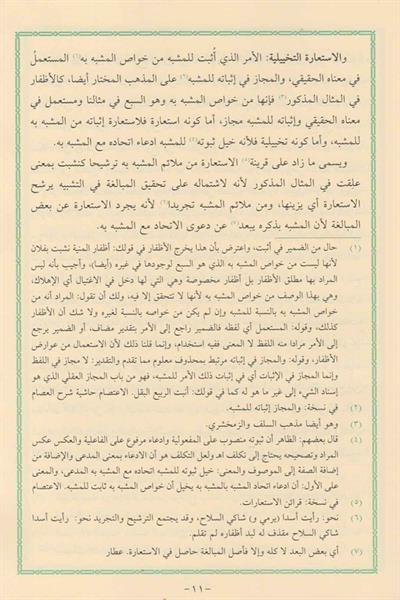 والاستعارة التخييلية: الأمر الذي أثبت للمشبه من خواص المشبه به(١) المستعملُ
في معناه الحقيقي، والمجاز في إثباته للمشبه(٢) على المذهب المختار أيضا، كالأظفار
في المثال المذكور(٣) فإنها من خواص المشبه به وهو السبع في مثالنا ومستعمل في
معناه الحقيقي وإثباته للمشبه مجاز، أما كونه استعارة فلاستعارة إثباته من المشبه به
للمشبه، وأما كونه تخييلية فلأنه خيل ثبوته(٤) للمشبه ادعاء اتحاده مع المشبه به.
ويسمى ما زاد على قرينة(٥) الاستعارة من ملائم المشبه به ترشيحا كنشبت بمعنى
علِقت في المثال المذكور لأنه لاشتماله على تحقيق المبالغة في التشبيه يرشح
الاستعارة أي يزينها، ومن ملائم المشبه تجريدا(٦) لأنه يجرد الاستعارة عن بعض
المبالغة لأن المشبه بذكره يبعد(٧) عن دعوى الاتحاد مع المشبه به.
(١) حال من الضمير في أثبت، واعترض بأن هذا يخرج الأظفار في قولك: أظفار المنية نشبت بفلان
لأنها ليست من خواص المشبه به الذي هو السبع لوجودها في غيره (أيضا)، وأجيب بأنه ليس
المراد بها مطلق الأظفار بل أظفار مخصوصة وهي التي لها دخل في الاغتيال أي الإهلاك،
وهي بهذا الوصف من خواص المشبه به لأنها لا تتحقق إلا فيه، ولك أن تقول: المراد أنه من
خواص المشبه به بالنسبة للمشبه وإن لم يكن من خواصه بالنسبة لغيره ولا شك أن الأظفار
كذلك، وقوله: المستعمل أي لفظه فالضمير راجع إلى الأمر بتقدير مضاف، أو الضمير يرجع
إلى الأمر مرادا منه اللفظ لا المعنى ففيه استخدام، وإنما قلنا ذلك لأن الاستعمال من عوارض
الألفاظ، وقوله: والمجاز في إثباته مرتبط بمحذوف معلوم مما تقدم والتقدير: لا مجاز في اللفظ
وإنما المجاز في الإثبات أي في إثبات ذلك الأمر للمشبه، فهو من باب المجاز العقلي الذي هو
إسناد الشيء إلى غير ما هو له كما في قولك: أنبت الربيع البقل. الاعتصام حاشية شرح العصام
(٢) في نسخة: والمجاز إثباته للمشبه.
(٣) وهو أيضا مذهب السلف والزمخشري.
(٤) قال بعضهم: الظاهر أن ثبوته منصوب على المفعولية وادعاء مرفوع على الفاعلية والعكس عكس
المراد وتصحيحه يحتاج إلى تكلف اهـ ولعل التكلف هو أن الادعاء بمعنى المدعى والإضافة من
إضافة الصفة إلى الموصوف والمعنى: خيل ثبوته للمشبه اتحاده مع المشبه به المدعى، والمعنى
على الأول: أن ادعاء اتحاد المشبه بالمشبه به يخيل أن خواص المشبه به ثابت للمشبه. الاعتصام
(٥) في نسخة: قرائن الاستعارات.
(٦) نحو: رأيت أسدا (يرمي و) شاكي السلاح، وقد يجتمع الترشيح والتجريد نحو: رأيت أسدا
شاكي السلاح مقذف له لبد أظفاره لم تقلم.
(٧) أي بعض البعد لا كله وإلا فأصل المبالغة حاصل في الاستعارة. عطار
-١١-